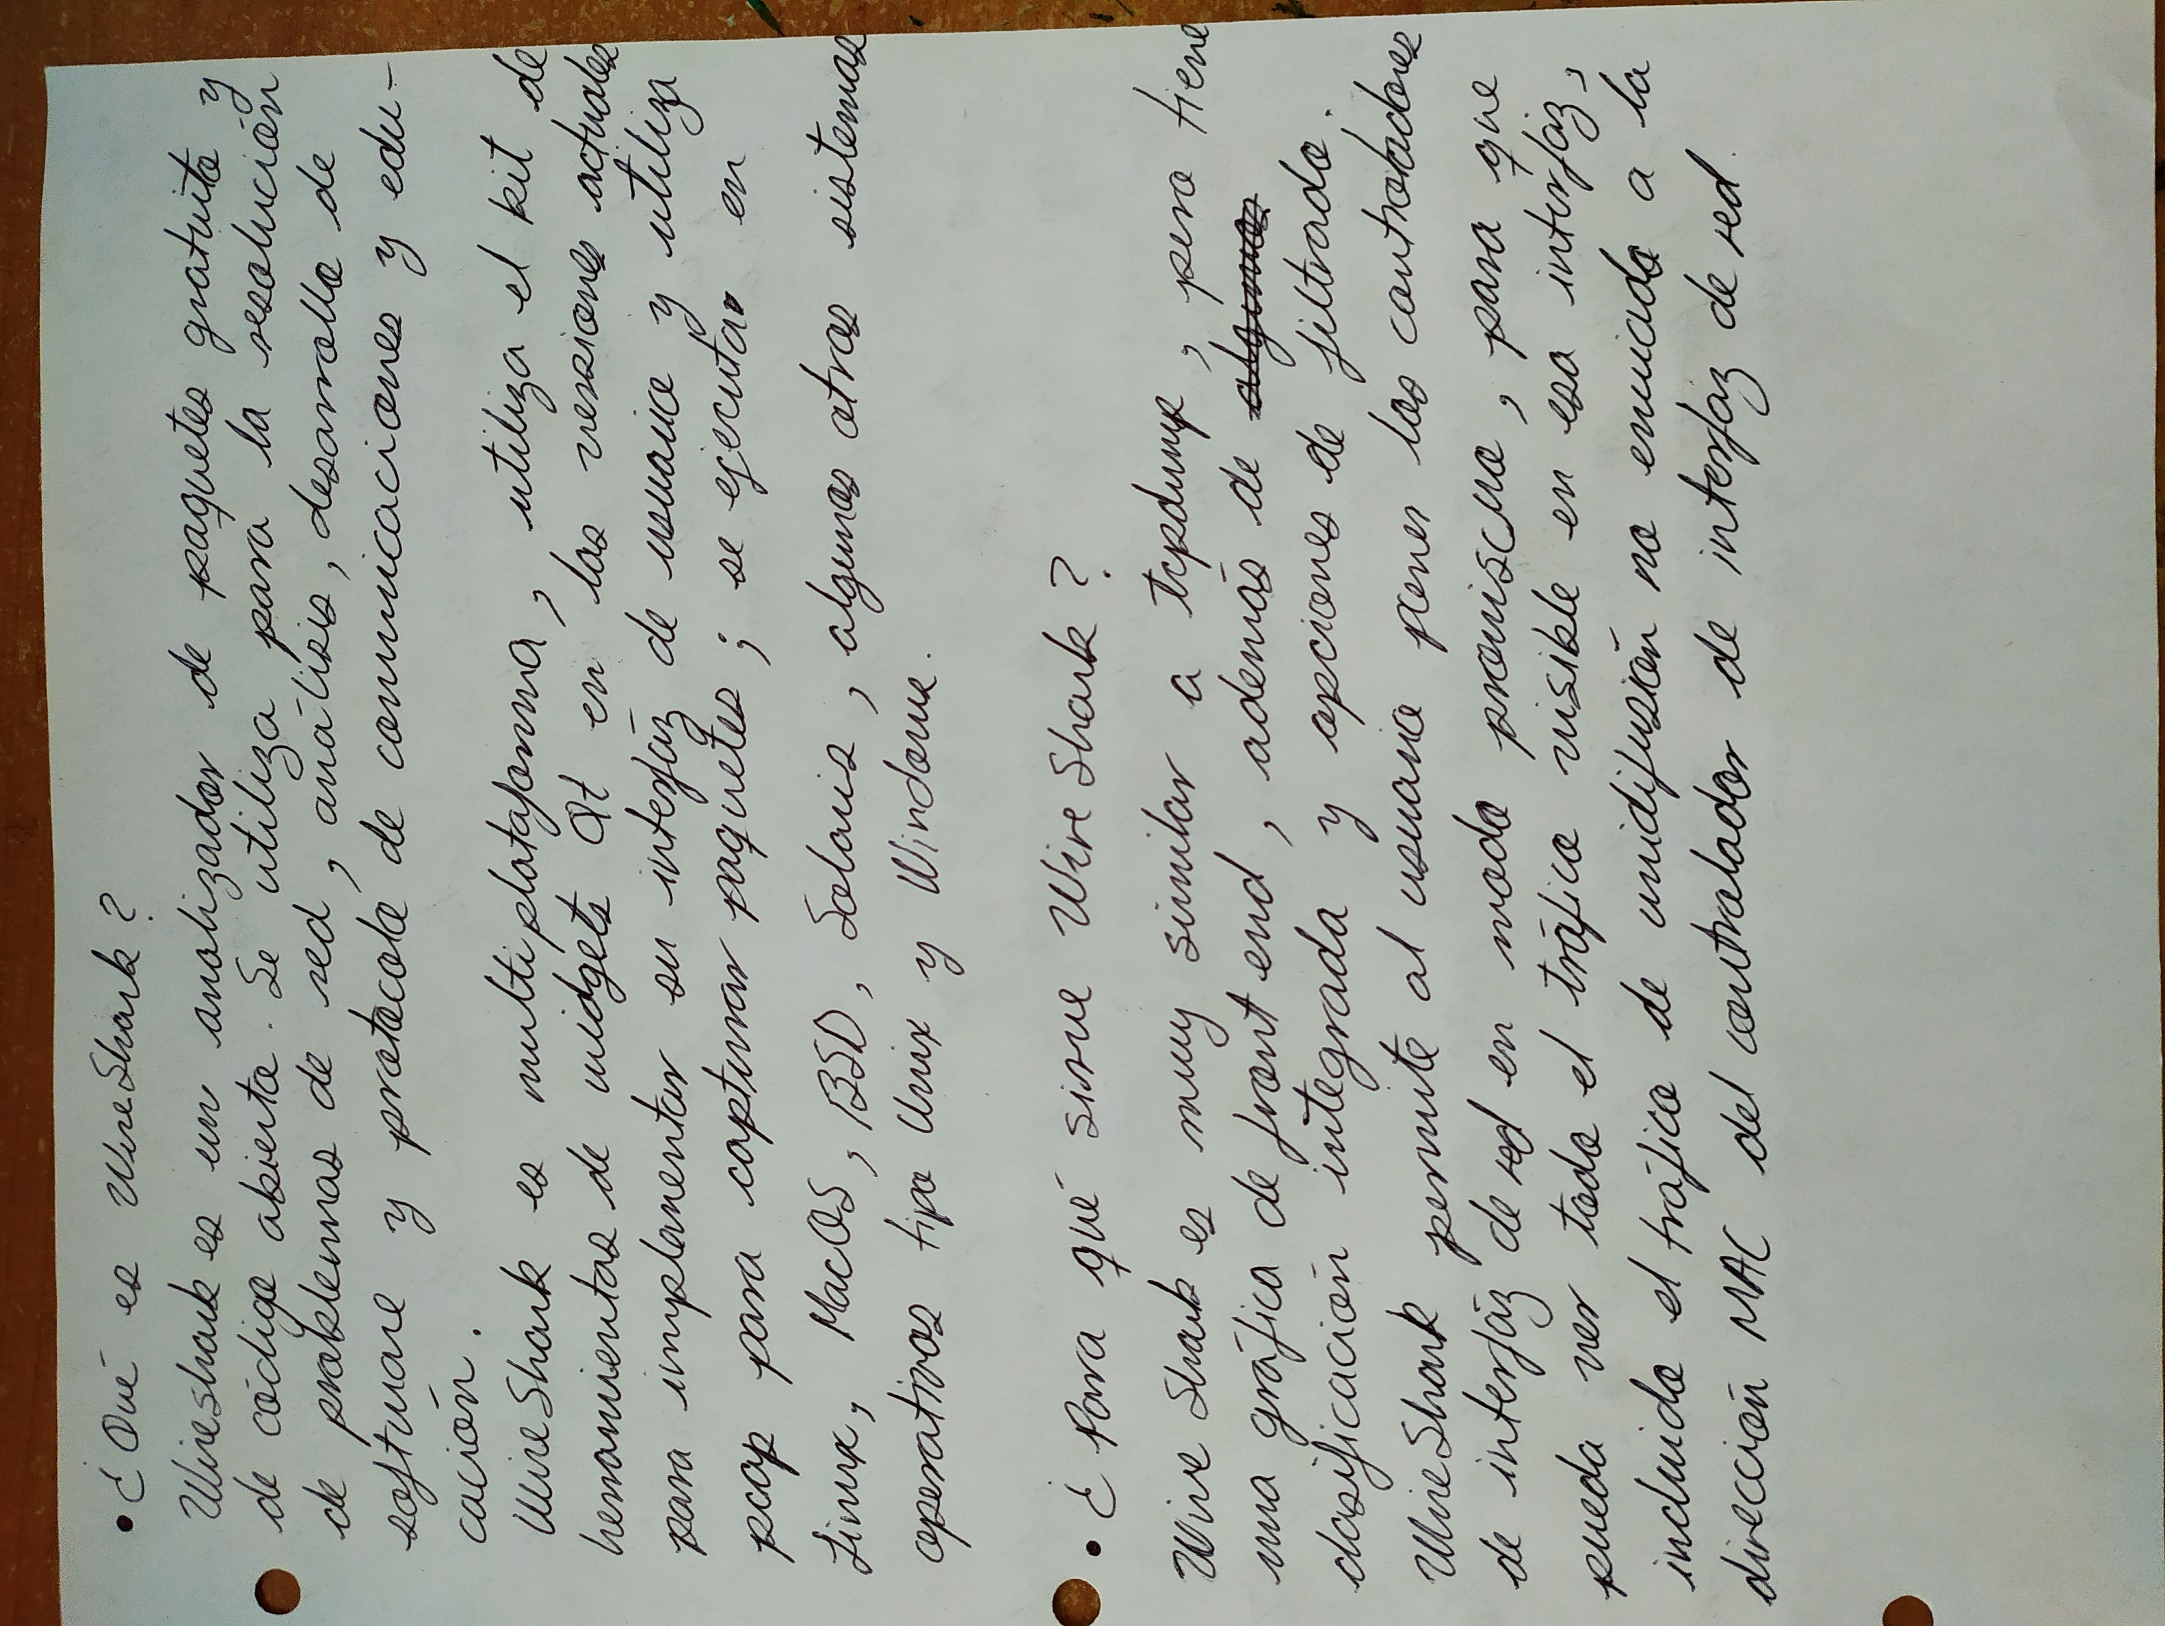 • ¿Qué es WireShark?
Wireshark es un analizador de paquetes gratuito y
de código abierto. Se utiliza para la resolución
de problemas de red, análisis, desarrollo de
software y protocolo de comunicaciones y edu-
cación.
WireShark es multiplataforma, utiliza el kit de
herramientas de widgets Qt en las versiones actuales
para implementar su interfáz de usuario y utiliza
pcap para capturar paquetes; se ejecutar en
Linux, MacOS, BSD, Solaris, algunos otros sistemas
operativos tipo Unix y Windows.
• ¿Para qué sirve WireShark?
Wire Shark es muy similar a tcpdump, pero tiene
una gráfica de front end, además de
clasificación integrada y opciones de filtrado.
WireShark permite al usuario poner los controladores
de interfáz de red en modo promiscuo, para que
pueda ver todo el tráfico visible en esa interfáz,
incluido el tráfico de unidifusión no enviado a la
dirección MAC del controlador de interfáz de red.